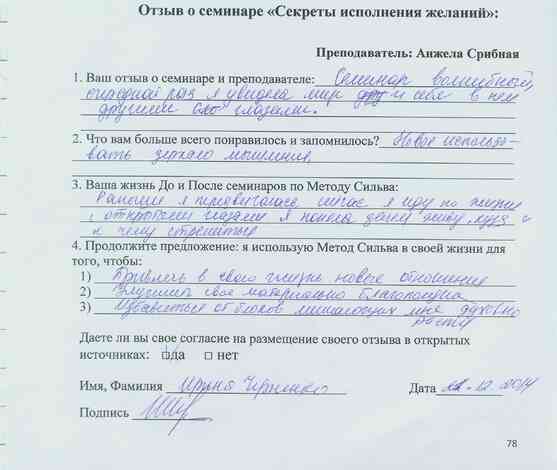 Отзыв о семинаре «Секреты исполнения желаний»:
Преподаватель: Анжела Срибная
1. Ваш отзыв о семинаре и преподавателе: Семинар волшебный,
очередной раз я увидела мир и себя в нем
другими глазами.
2. Что вам больше всего понравилось и запомнилось? Новое использо-
вать зеркало мышления
3. Ваша жизнь До и После семинаров по Методу Сильва:
Раньше я сейчас я иду по жизни
с открытыми глазами я поняла зачем живу, куда и
к чему стремиться
4. Продолжите предложение: я использую Метод Сильва в своей жизни для
того, чтобы:
1) Привлечь в свою жизнь новое отношение
2) Улучшить свое материально
3) Избавиться от блоков мешающих мне духовно
расти
Даете ли вы свое согласие на размещение своего отзыва в открытых
источниках: □да □ нет
Имя, Фамилия Ирина
Дата 12. 2014
Подпись
78